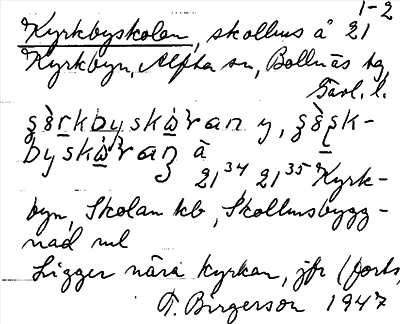 1-2
Kyrkbyskolan, skolhus å 21
Kyrkbyn, Alfta sn, Bollnäs tg,
Gävl. l.
byskà̱ʹran å
21³⁴, 21³⁵ Kyrk-
byn, Skolan kb, Skolhusbygg-
nad ml
Ligger nära kyrkan, jfr (forts,
T. Birgerson 1947